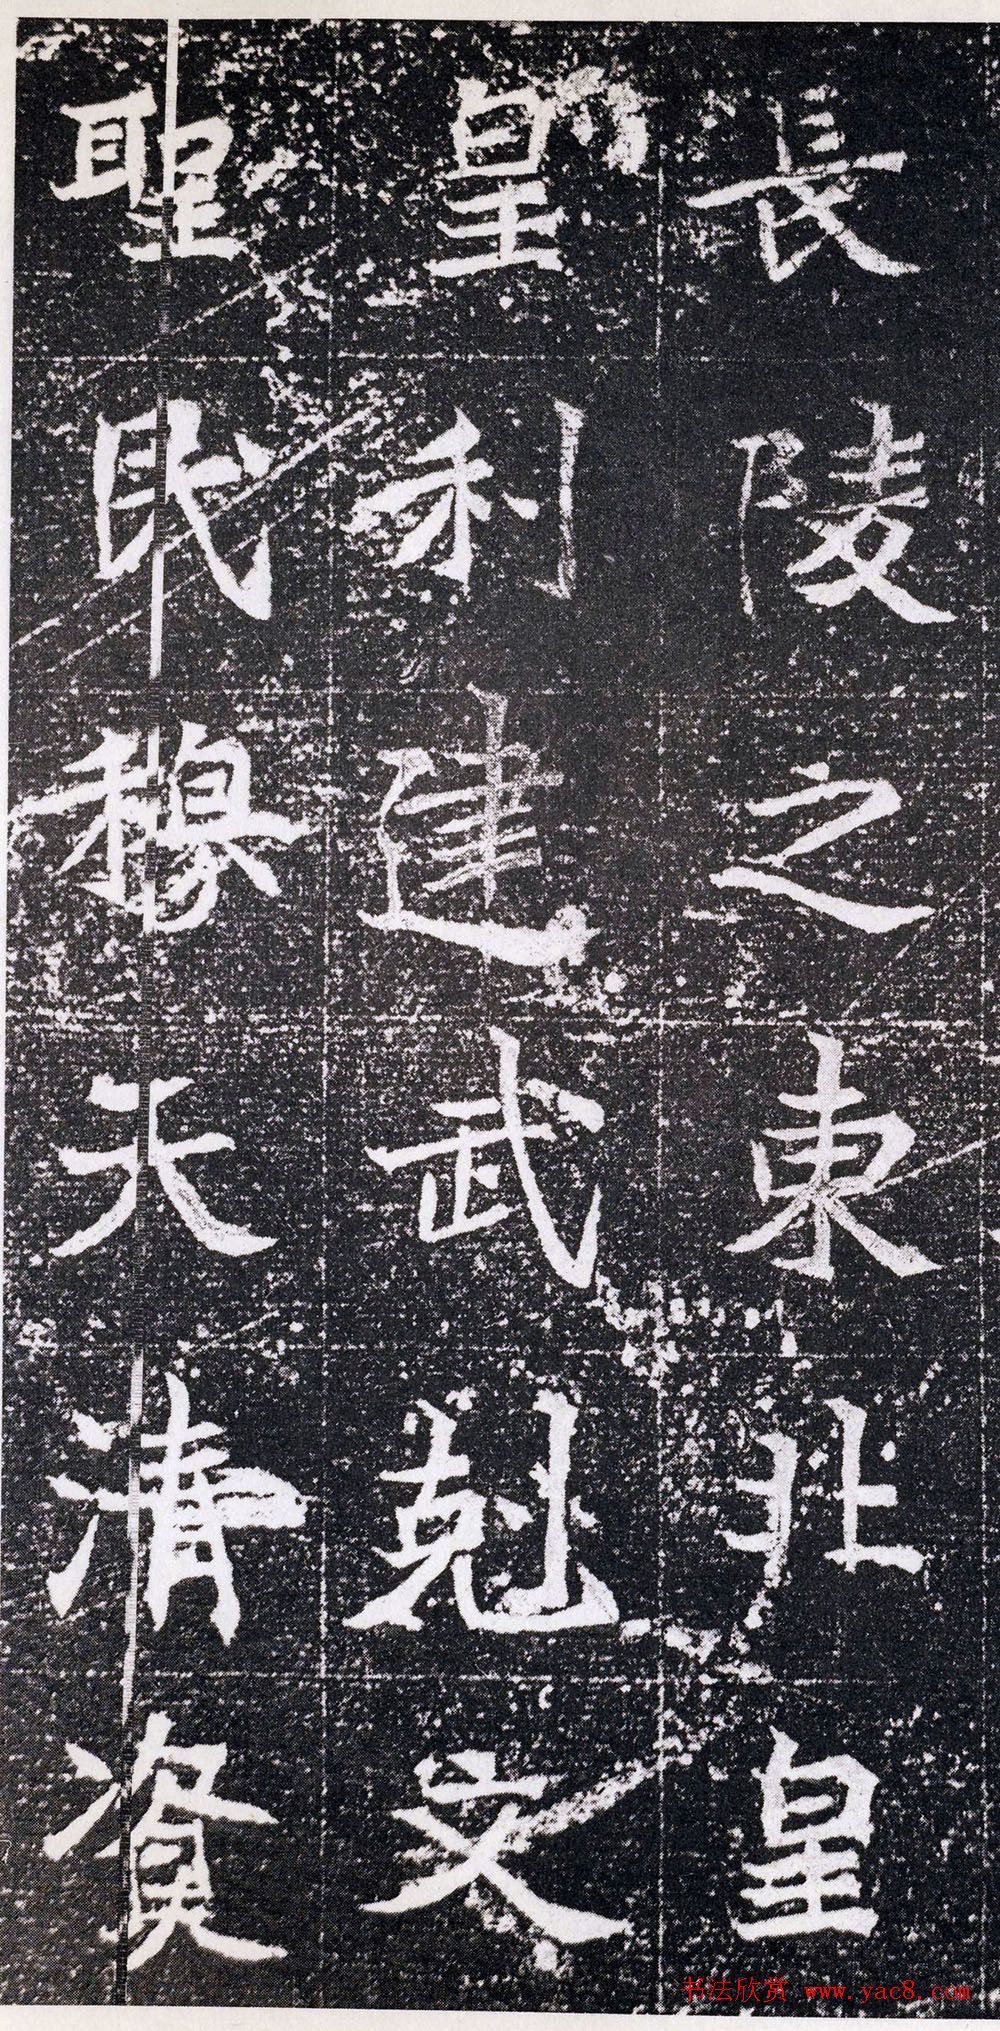 長陵之東北皇
皇利建武剋文
聖民穆大清資
书法欣赏 www.yac8.com